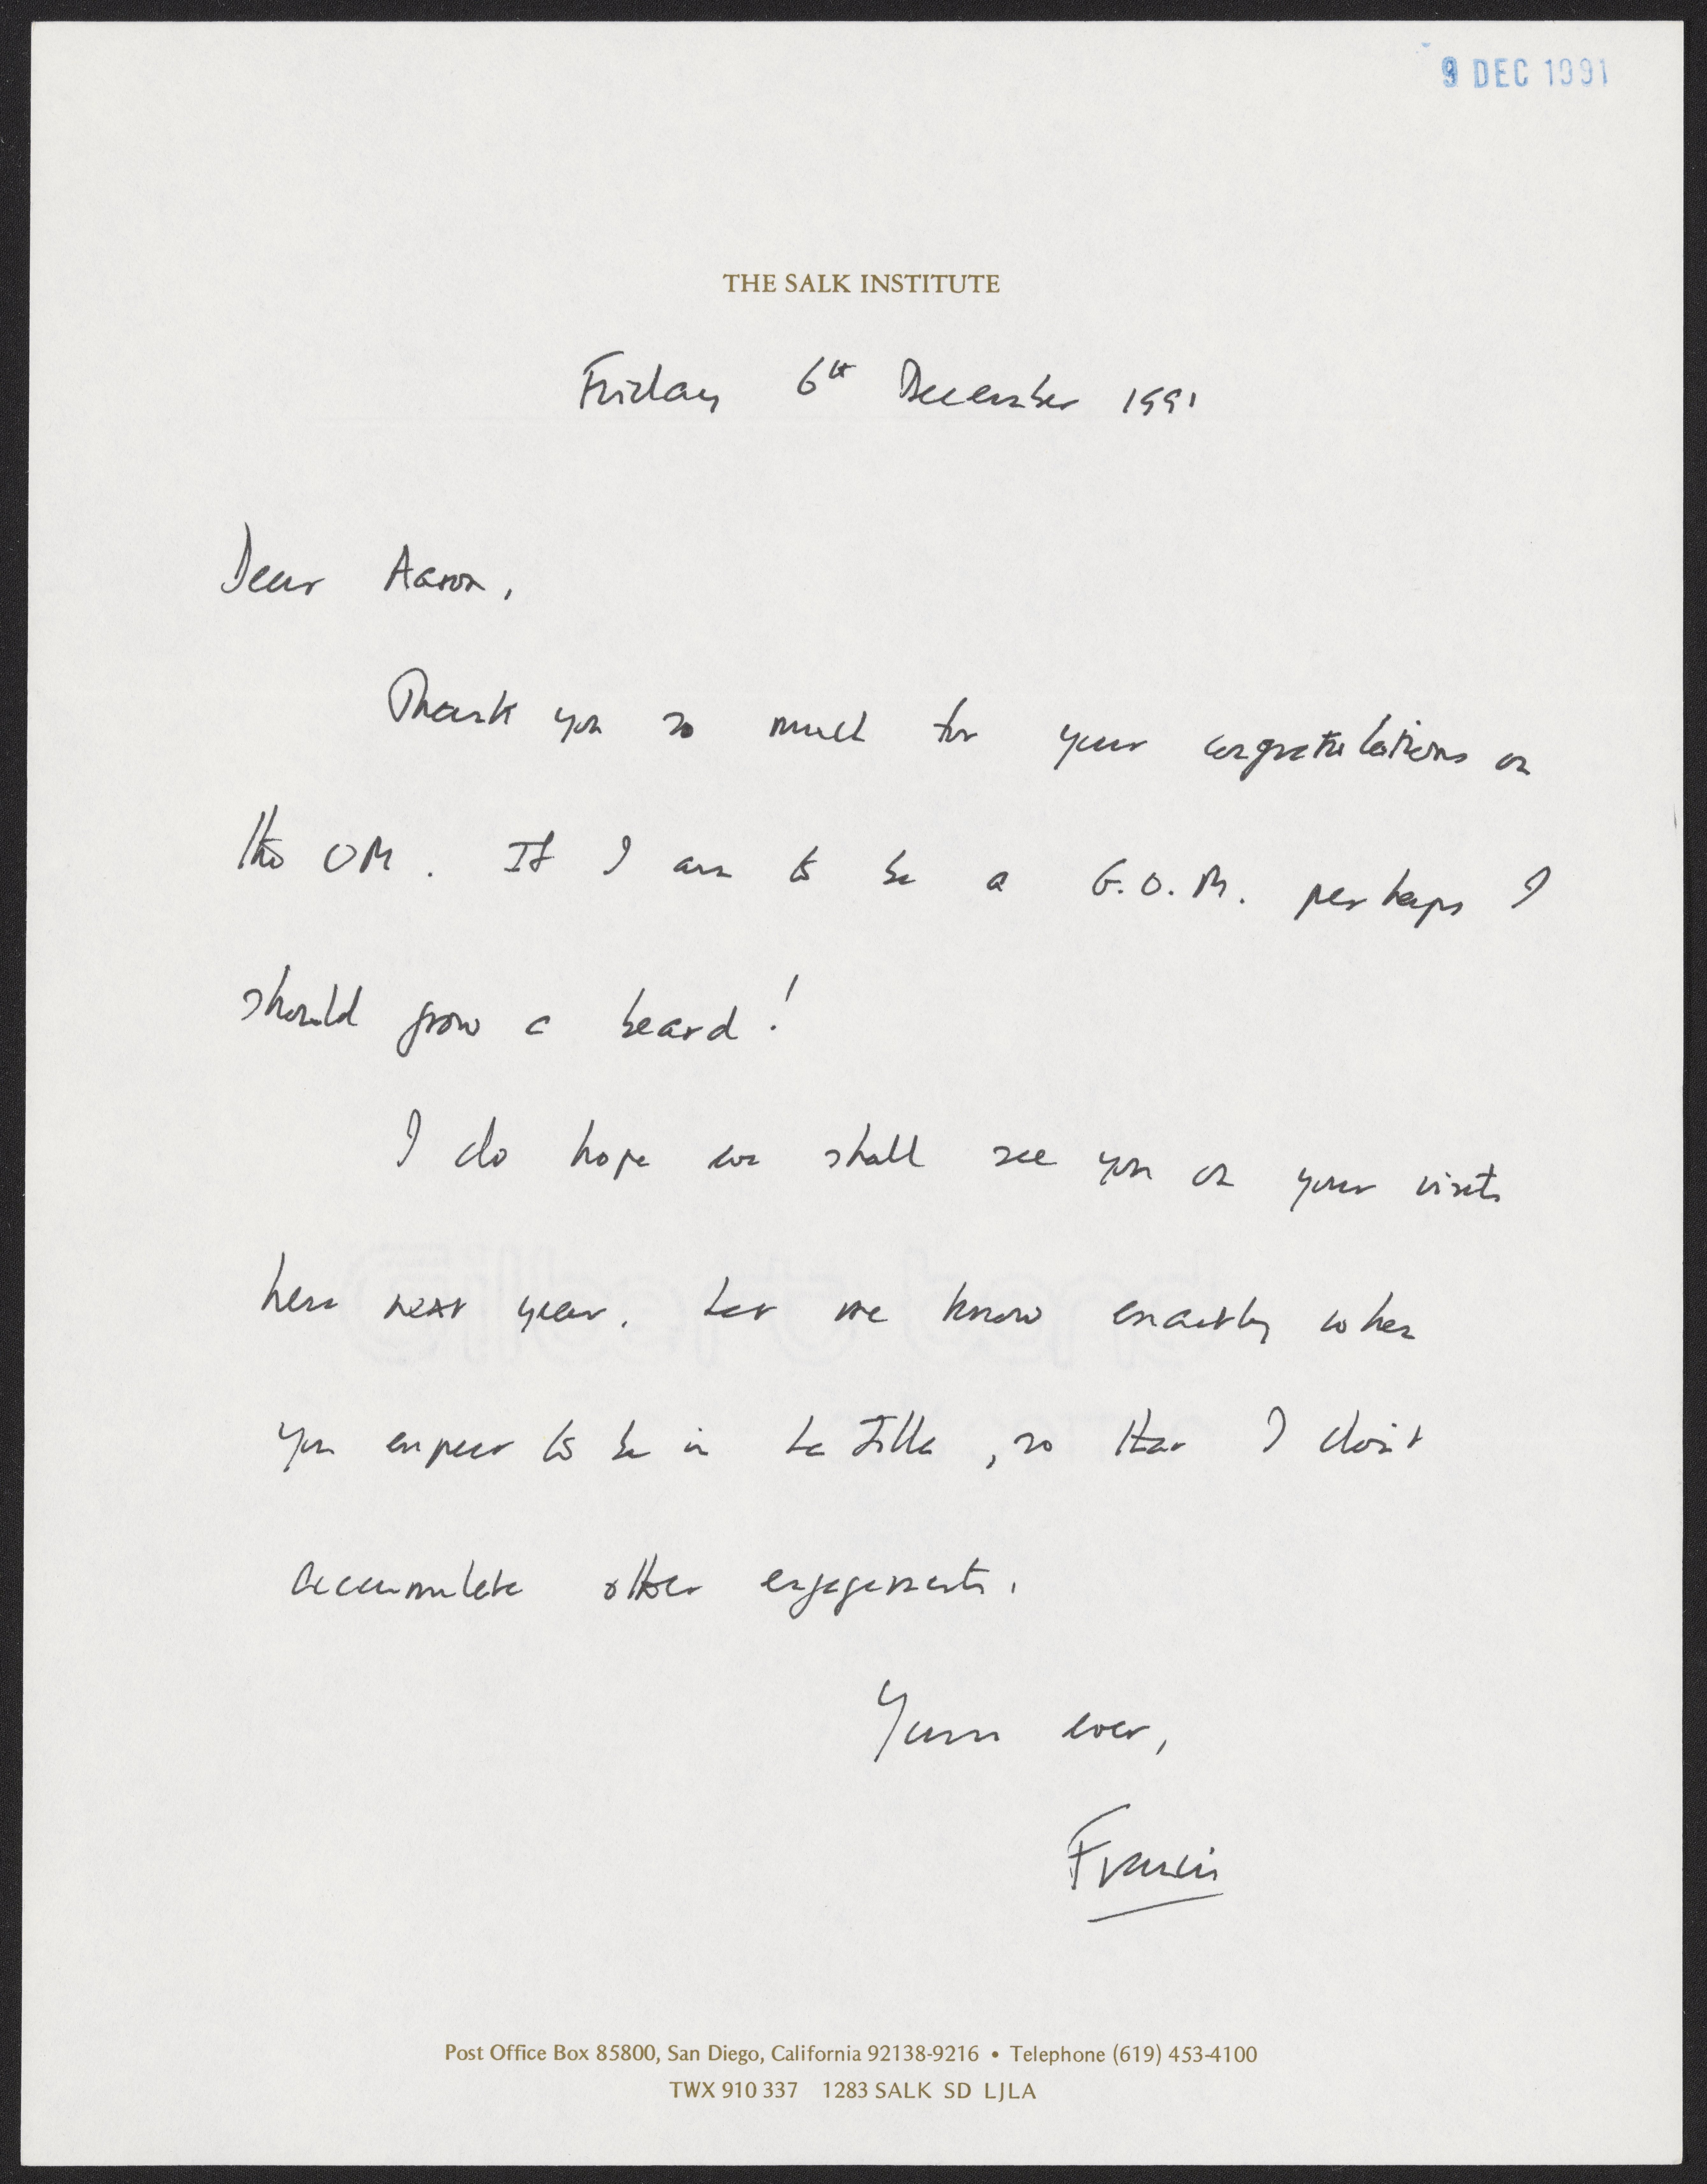 9 DEC 1991
THE SALK INSTITUTE
Friday 6th December 1991
Dear Aaron,
Thank you so much for your congratulations on
the OM. If I am to be a G.O.M. perhaps I
should grow a beard!
I do hope we shall see you on your visits
here next year. Let me know exactly when
you expect to be in La Jolla, so that I don't
accumulate other engagements.
Yours ever,
Francis
Post Office Box 85800, San Diego, California 92138-9216 • Telephone (619) 453-4100
TWX 910 337 1283 SALK SD LJLA